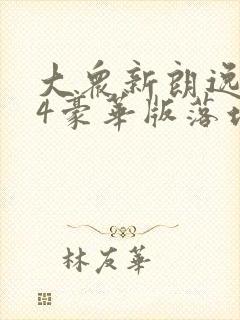 大众新朗逸
4豪华版落地
林友华